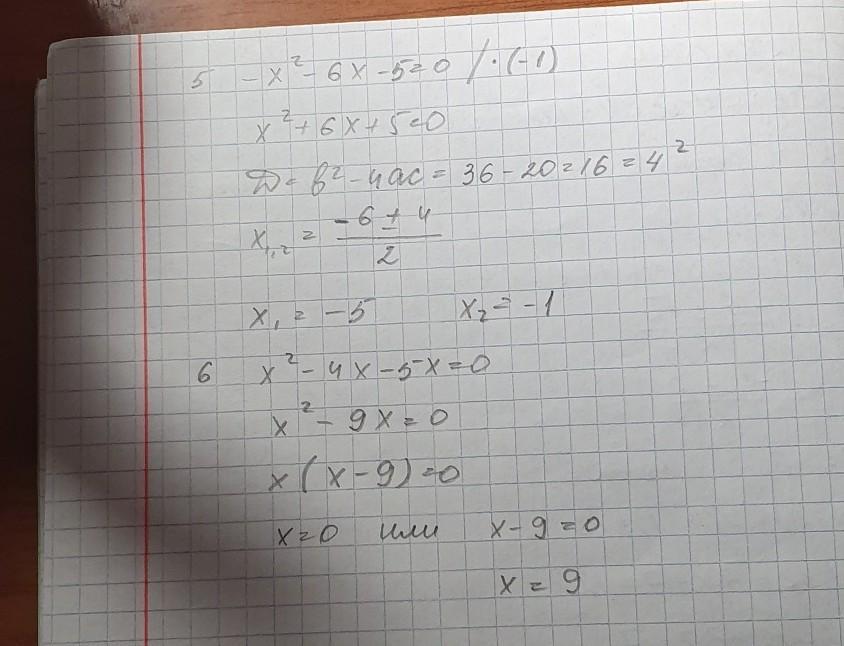 5 -x² - 6x - 5 = 0 / · (-1)
x² + 6x + 5 = 0
D = b² - 4ac = 36 - 20 = 16 = 4²
x₁,₂ = (-6 ± 4) / 2
x₁ = -5 x₂ = -1
6 x² - 4x - 5x = 0
x² - 9x = 0
x(x - 9) = 0
x = 0 или x - 9 = 0
x = 9